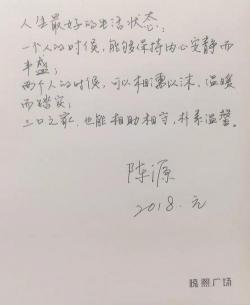 人生最好的生活状态：
一个人的时候，能够保持内心安静而
丰盛；
两个人的时候，可以相濡以沫，温暖
而踏实；
三口之家，也能相助相守，朴素温馨。
陈源
2018.元
晓熙广场